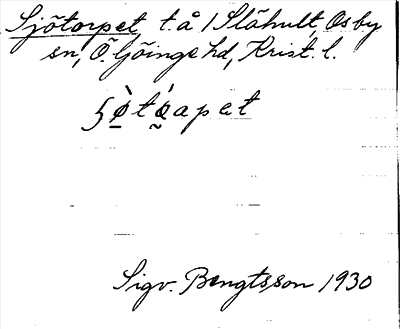 Sjötorpet, t. å 1 Slähult, Osby
sn, Ö. Göinge hd, Krist. l.
Sigv. Bengtsson 1930